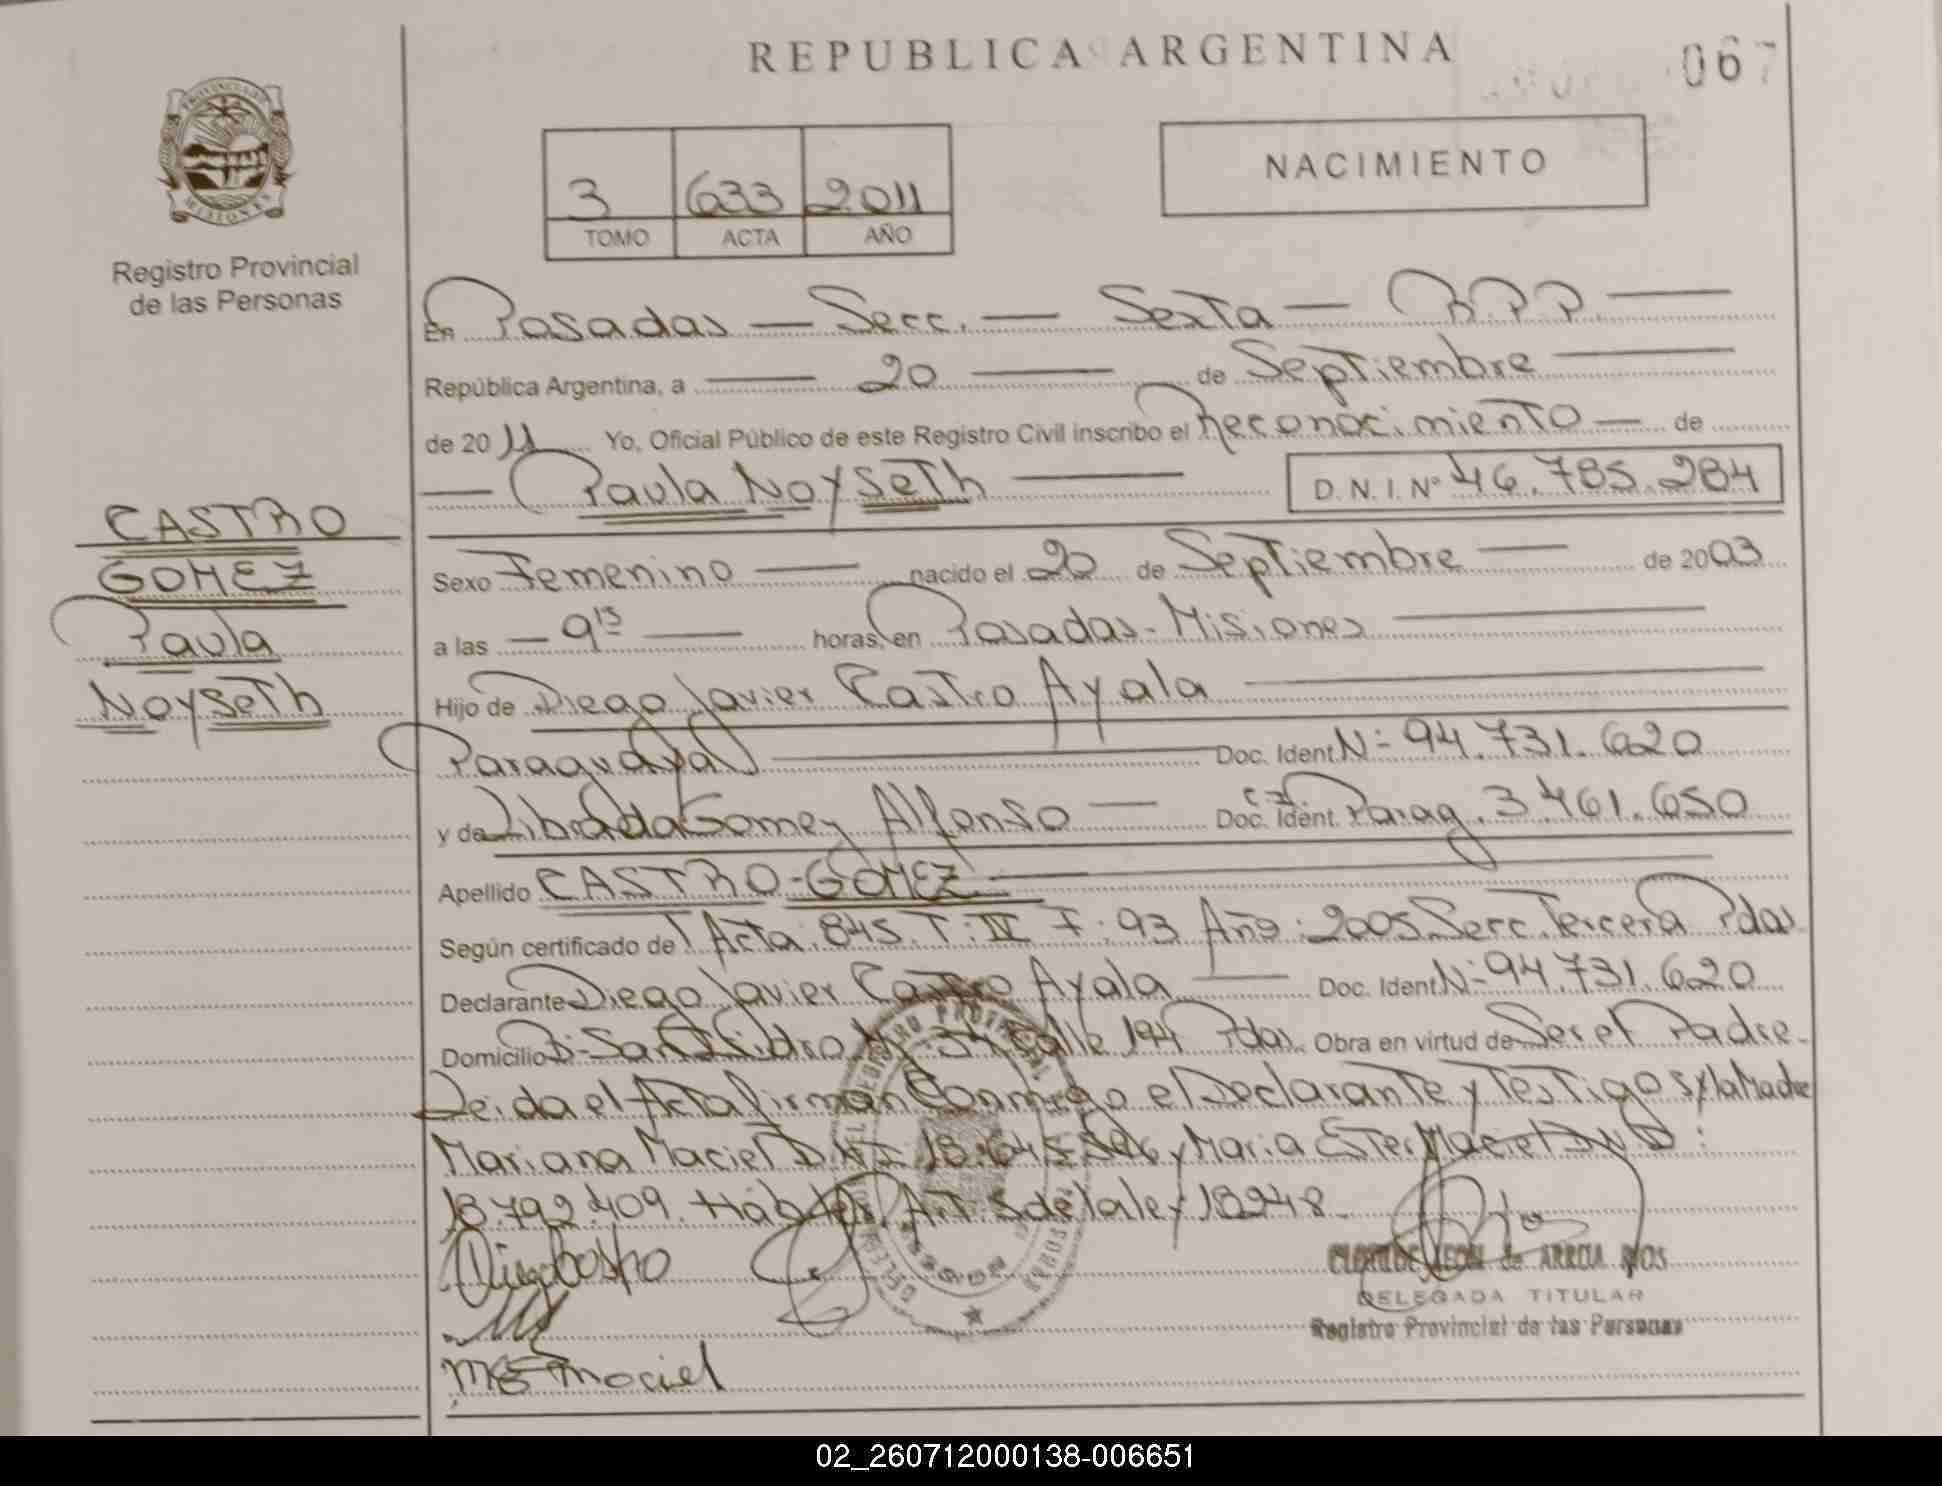 REPUBLICA ARGENTINA
067
PROVINCIA DE
MISIONES
Registro Provincial
de las Personas
3 633 2011
TOMO ACTA AÑO
NACIMIENTO
En Posadas — Secc. — Sexta — R.P.P. —
República Argentina, a — 20 — de Septiembre —
de 2011 Yo, Oficial Público de este Registro Civil inscribo el Reconocimiento — de
— Paula Noyseth — D.N.I. Nº 46.785.284
CASTRO
GOMEZ
Paula
Noyseth
Sexo Femenino — nacido el 20 de Septiembre — de 2003
a las — 9 15 — horas, en Posadas - Misiones —
Hijo de Diego Javier Castro Ayala —
Paraguaya — Doc. Ident. Nº 94.731.620
y de Librada Gomez Alfonso — Doc. Ident. C.I. Parag. 3.461.650
Apellido CASTRO - GOMEZ —
Según certificado de Acta: 845. T: IV F: 93 Año: 2005 Secc. Tercera Pdas
Declarante Diego Javier Castro Ayala — Doc. Ident. Nº 94.731.620
Domicilio Bº San Isidro Calle 194 Pdas. Obra en virtud de Ser el Padre -
Leida el Acta firman Conmigo el Declarante y Testigos y la Madre
Mariana Maciel D.N.I. 18.645. y Maria Ester Maciel D.N.I:
18.792.409. Art. 5 de la ley 18248.
Diego Castro
CLOTILDE LEON de ARROA RIOS
DELEGADA TITULAR
Registro Provincial de las Personas
ME Maciel
02_260712000138-006651